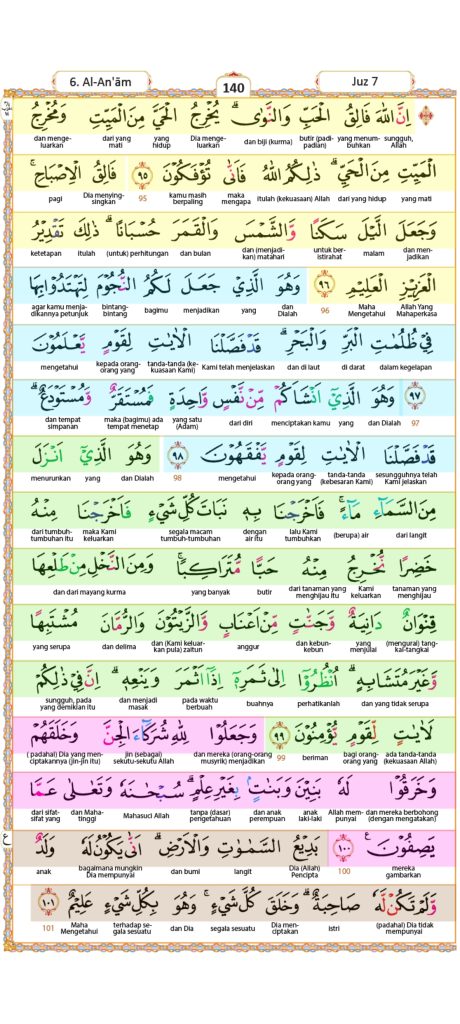 6. Al-An'ām
140
Juz 7
اِنَّ اللّٰهَ فَالِقُ الْحَبِّ وَالنَّوٰىۗ يُخْرِجُ الْحَيَّ مِنَ الْمَيِّتِ وَمُخْرِجُ
dan menge- dari yang yang Dia menge- dan biji (kurma) butir (padi- yang menum- sungguh,
luarkan mati hidup luarkan padian) buhkan Allah
الْمَيِّتِ مِنَ الْحَيِّۗ ذٰلِكُمُ اللّٰهُ فَاَنّٰى تُؤْفَكُوْنَ ٩٥ فَالِقُ الْاِصْبَاحِۚ
pagi Dia menying- 95 kamu masih maka itulah (kekuasaan) Allah dari yang hidup yang mati
singkingkan berpaling mengapa
وَجَعَلَ الَّيْلَ سَكَنًا وَّالشَّمْسَ وَالْقَمَرَ حُسْبَانًاۗ ذٰلِكَ تَقْدِيْرُ
ketetapan itulah (untuk) perhitungan dan bulan dan (menjadi- untuk ber- malam dan men-
kan) matahari istirahat jadikan
الْعَزِيْزِ الْعَلِيْمِ ٩٦ وَهُوَ الَّذِيْ جَعَلَ لَكُمُ النُّجُوْمَ لِتَهْتَدُوْا بِهَا
agar kamu menja- bintang- bagimu menjadikan yang dan Maha Allah Yang
dikannya petunjuk bintang Dialah 96 Mengetahui Mahaperkasa
فِيْ ظُلُمٰتِ الْبَرِّ وَالْبَحْرِۗ قَدْ فَصَّلْنَا الْاٰيٰتِ لِقَوْمٍ يَّعْلَمُوْنَ
mengetahui kepada orang- tanda-tanda (ke- Kami telah menjelaskan dan di laut di darat dalam kegelapan
orang yang kuasaan Kami)
٩٧ وَهُوَ الَّذِيْٓ اَنْشَاَكُمْ مِّنْ نَّفْسٍ وَّاحِدَةٍ فَمُسْتَقَرٌّ وَّمُسْتَوْدَعٌۗ
dan tempat maka (bagimu) ada yang satu dari diri menciptakan kamu yang dan Dialah 97
simpanan tempat menetap (Adam)
قَدْ فَصَّلْنَا الْاٰيٰتِ لِقَوْمٍ يَّفْقَهُوْنَ ٩٨ وَهُوَ الَّذِيْٓ اَنْزَلَ
menurunkan yang dan Dialah 98 mengetahui kepada orang- tanda-tanda sesungguhnya telah
orang yang (kebesaran Kami) Kami jelaskan
مِنَ السَّمَاۤءِ مَاۤءًۚ فَاَخْرَجْنَا بِهٖ نَبَاتَ كُلِّ شَيْءٍ فَاَخْرَجْنَا مِنْهُ
dari tumbuh- maka Kami segala macam dengan lalu Kami (berupa) air dari langit
tumbuhan itu keluarkan tumbuh-tumbuhan air itu tumbuhkan
خَضِرًا نُّخْرِجُ مِنْهُ حَبًّا مُّتَرَاكِبًاۚ وَمِنَ النَّخْلِ مِنْ طَلْعِهَا
dan dari mayang kurma yang banyak butir dari tanaman yang Kami tanaman yang
menghijau itu keluarkan menghijau
قِنْوَانٌ دَانِيَةٌ وَّجَنّٰتٍ مِّنْ اَعْنَابٍ وَّالزَّيْتُوْنَ وَالرُّمَّانَ مُشْتَبِهًا
yang serupa dan delima dan (Kami keluar- anggur dan kebun- yang (mengurai) tang-
kan pula) zaitun kebun menjulai kai-tangkai
وَّغَيْرَ مُتَشَابِهٍۗ اُنْظُرُوْٓا اِلٰى ثَمَرِهٖٓ اِذَآ اَثْمَرَ وَيَنْعِهٖۗ اِنَّ فِيْ ذٰلِكُمْ
sungguh, pada dan menjadi pada waktu buahnya perhatikanlah dan yang tidak serupa
yang demikian itu masak berbuah
لَاٰيٰتٍ لِّقَوْمٍ يُّؤْمِنُوْنَ ٩٩ وَجَعَلُوْا لِلّٰهِ شُرَكَاۤءَ الْجِنَّ وَخَلَقَهُمْ
( padahal) Dia yang men- jin (sebagai) dan mereka (orang-orang 99 beriman bagi orang- ada tanda-tanda
ciptakannya (jin-jin itu) sekutu-sekutu Allah musyrik) menjadikan orang yang (kekuasaan Allah)
وَخَرَقُوْا لَهٗ بَنِيْنَ وَبَنٰتٍۢ بِغَيْرِ عِلْمٍۗ سُبْحٰنَهٗ وَتَعٰلٰى عَمَّا
dari sifat- dan Maha- Mahasuci Allah tanpa (dasar) dan anak anak Allah mem- dan mereka berbohong
sifat yang tinggi pengetahuan perempuan laki-laki punyai (dengan mengatakan)
يَصِفُوْنَ ࣖ ١٠٠ بَدِيْعُ السَّمٰوٰتِ وَالْاَرْضِۗ اَنّٰى يَكُوْنُ لَهٗ وَلَدٌ
anak bagaimana mungkin dan bumi langit Dia (Allah) mereka
Dia mempunyai Pencipta 100 gambarkan
وَّلَمْ تَكُنْ لَّهٗ صَاحِبَةٌۗ وَخَلَقَ كُلَّ شَيْءٍۚ وَهُوَ بِكُلِّ شَيْءٍ عَلِيْمٌ ١٠١
101 Maha terhadap se- dan Dia segala sesuatu Dia men- istri (padahal) Dia tidak
Mengetahui gala sesuatu ciptakan mempunyai